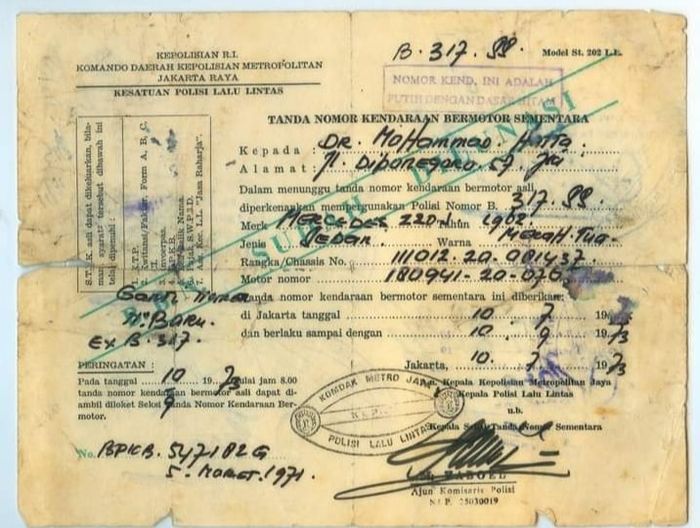 KEPOLISIAN R.I.
KOMANDO DAERAH KEPOLISIAN METROPOLITAN
JAKARTA RAYA
KESATUAN POLISI LALU LINTAS
B. 317. SS.
Model St. 202 L.L.
NOMOR KEND. INI ADALAH
PUTIH DENGAN DASAR HITAM
TANDA NOMOR KENDARAAN BERMOTOR SEMENTARA
Kepada : DR. MoHammad. Hatta.
Alamat : Jl. Diponegoro. 57. Jkt
Dalam menunggu tanda nomor kendaraan bermotor asli
diperkenankan mempergunakan Polisi Nomor B. 317. SS
Merk MERCEDES 220.
Tahun 1962.
Jenis Sedan.
Warna MERAH. Tua.
Rangka/Chassis No. 111012.20-081437.
Motor nomor 180941-20-076
tanda nomor kendaraan bermotor sementara ini diberikan:
di Jakarta tanggal 10. 7 1973
dan berlaku sampai dengan 10. 9 1973
Jakarta, 10. 7 1973
A.n. Kepala Kepolisian Metropolitan Jaya
Kepala Polisi Lalu Lintas
u.b.
Kepala Seksi Tanda Nomor Sementara
Ajun Komisaris Polisi
S.T.N.K. asli dapat dikeluarkan, bila-
mana syarat2 tersebut dibawah ini
telah dipenuhi :
1. K.T.P.
2. Kwitansi/Faktur. Form A, B, C.
SUDAH DILUNASI
Ganti Nomer
No. Baru.
Ex B. 317.
PERINGATAN :
Pada tanggal 10 9 1973 mulai jam 8.00
tanda nomor kendaraan bermotor asli dapat di-
ambil diloket Seksi Tanda Nomor Kendaraan Ber-
motor.
No. BPKB. 547182 G
5. MARET. 1971.
KOMDAK METRO JAYA
POLISI LALU LINTAS